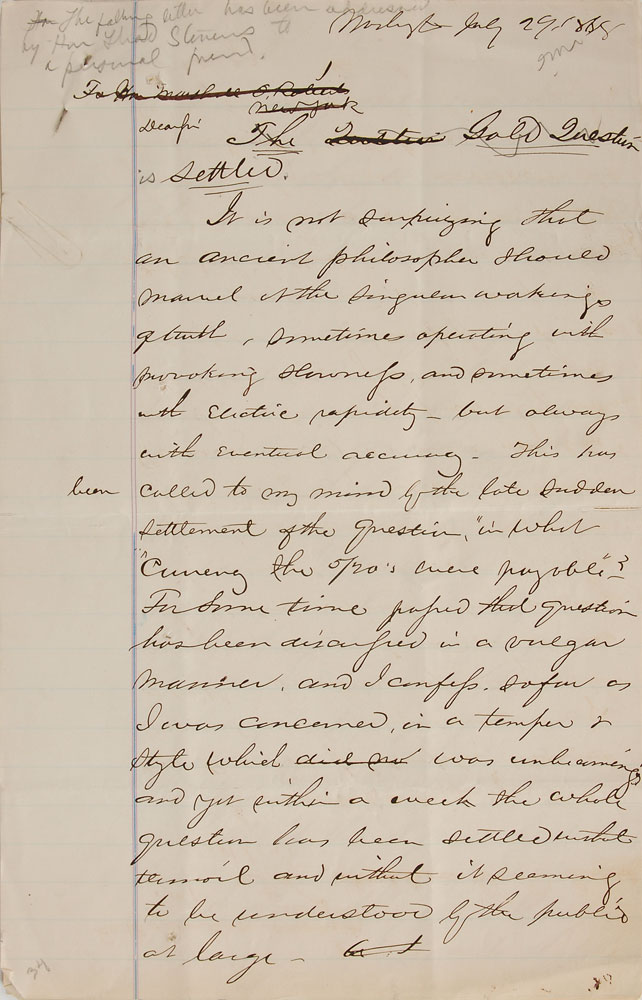 For The following letter has been addressed
by Hon Thad Stevens to
a personal friend.
Washington July 29. 1868
To Hon Marshall O. Roberts
New York
Dear Sir
The Question Gold Question
is settled.
It is not surprising that
an ancient philosopher should
marvel at the singular workings
of truth, sometimes operating with
provoking slowness, and sometimes
with Electric rapidity - but always
with eventual accuracy - This has
been called to my mind by the late sudden
settlement of the question, "in what
"Currency the 5/20's were payable"?
For some time passed that question
has been discussed in a vulgar
manner, and I confess, so far as
I was concerned, in a temper &
style which did not was unbecoming,
and yet within a week the whole
question has been settled without
turmoil and without it seeming
to be understood by the public
at large -
34